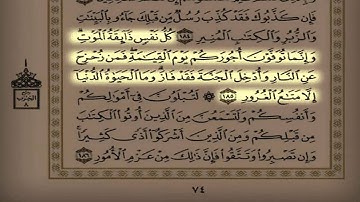 فَإِن كَذَّبُوكَ فَقَدْ كُذِّبَ رُسُلٌ مِّن قَبْلِكَ جَاءُو بِالْبَيِّنَٰتِ
وَالزُّبُرِ وَالْكِتَٰبِ الْمُنِيرِ ١٨٤ كُلُّ نَفْسٍ ذَائِقَةُ الْمَوْتِ
وَإِنَّمَا تُوَفَّوْنَ أُجُورَكُمْ يَوْمَ الْقِيَٰمَةِ فَمَن زُحْزِحَ
عَنِ النَّارِ وَأُدْخِلَ الْجَنَّةَ فَقَدْ فَازَ وَمَا الْحَيَوٰةُ الدُّنْيَا
إِلَّا مَتَٰعُ الْغُرُورِ ١٨٥ ۞ لَتُبْلَوُنَّ فِي أَمْوَٰلِكُمْ
وَأَنفُسِكُمْ وَلَتَسْمَعُنَّ مِنَ الَّذِينَ أُوتُوا الْكِتَٰبَ
مِن قَبْلِكُمْ وَمِنَ الَّذِينَ أَشْرَكُوا أَذًى كَثِيرًا
وَإِن تَصْبِرُوا وَتَتَّقُوا فَإِنَّ ذَٰلِكَ مِنْ عَزْمِ الْأُمُورِ ١٨٦
الحزب
٨
٧٤